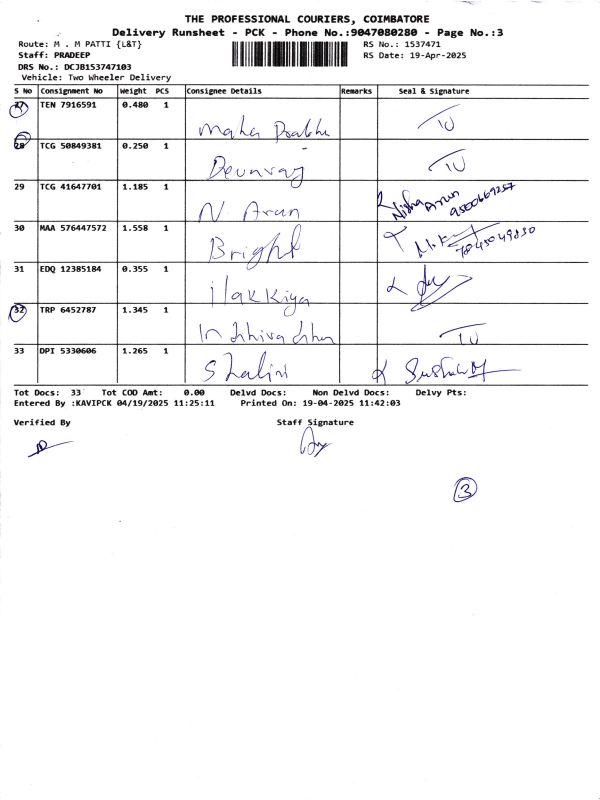 THE PROFESSIONAL COURIERS, COIMBATORE
Delivery Runsheet - PCK - Phone No.:9047080280 - Page No.:3
Route: M . M PATTI {L&T} RS No.: 1537471
Staff: PRADEEP RS Date: 19-Apr-2025
DRS No.: DCJB153747103
Vehicle: Two Wheeler Delivery
S No Consignment No Weight PCS Consignee Details Remarks Seal & Signature
27 TEN 7916591 0.480 1 Maha Prabhu TU
28 TCG 50849381 0.250 1 Devaraj TU
29 TCG 41647701 1.185 1 N. Arun Nisha Arun 9500669257
30 MAA 576447572 1.558 1 Bright 7845049830
31 EDQ 12385184 0.355 1 ilakkiya
32 TRP 6452787 1.345 1 TU
33 DPI 5330606 1.265 1 Shalini
Tot Docs: 33 Tot COD Amt: 0.00 Delvd Docs: Non Delvd Docs: Delvy Pts:
Entered By :KAVIPCK 04/19/2025 11:25:11 Printed On: 19-04-2025 11:42:03
Verified By Staff Signature
3